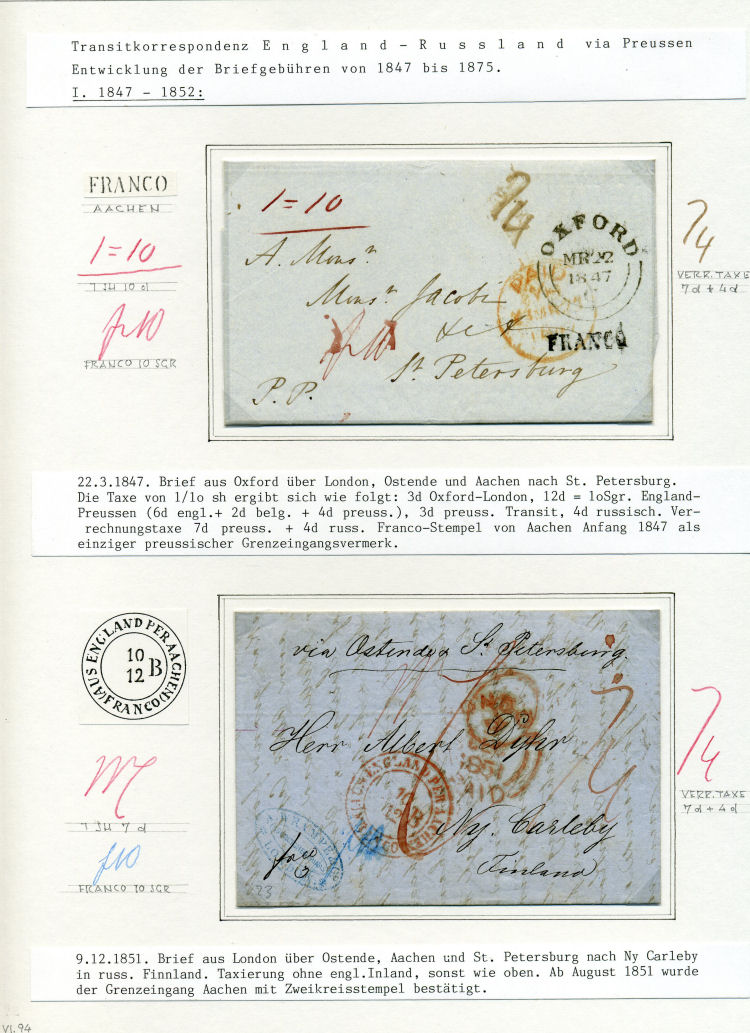 Transitkorrespondenz E n g l a n d - R u s s l a n d via Preussen
Entwicklung der Briefgebühren von 1847 bis 1875.
I. 1847 - 1852:
FRANCO
AACHEN
1=10
1 SH 10 d
fr10
FRANCO 10 SGR
1=10
7/4
OXFORD
MR 22
1847
PAID
A. Monsr
Monsr Jacobi
fr10
FRANCO
St Petersburg
P.P.
7/4
VERR. TAXE
7d + 4d
22.3.1847. Brief aus Oxford über London, Ostende und Aachen nach St. Petersburg.
Die Taxe von 1/1o sh ergibt sich wie folgt: 3d Oxford-London, 12d = 1oSgr. England-
Preussen (6d engl.+ 2d belg. + 4d preuss.), 3d preuss. Transit, 4d russisch. Ver-
rechnungstaxe 7d preuss. + 4d russ. Franco-Stempel von Aachen Anfang 1847 als
einziger preussischer Grenzeingangsvermerk.
AUS ENGLAND PER AACHEN
10
12
B
FRANCO
1 SH 7 d
f10
FRANCO 10 SGR
via Ostende & St. Petersburg.
Herr Albert Dyhr
1851
PAID
AUS ENGLAND PER AACHEN
Ny. Carleby
Finland
23
7/4
VERR. TAXE
7d + 4d
9.12.1851. Brief aus London über Ostende, Aachen und St. Petersburg nach Ny Carleby
in russ. Finnland. Taxierung ohne engl.Inland, sonst wie oben. Ab August 1851 wurde
der Grenzeingang Aachen mit Zweikreisstempel bestätigt.
VI.94